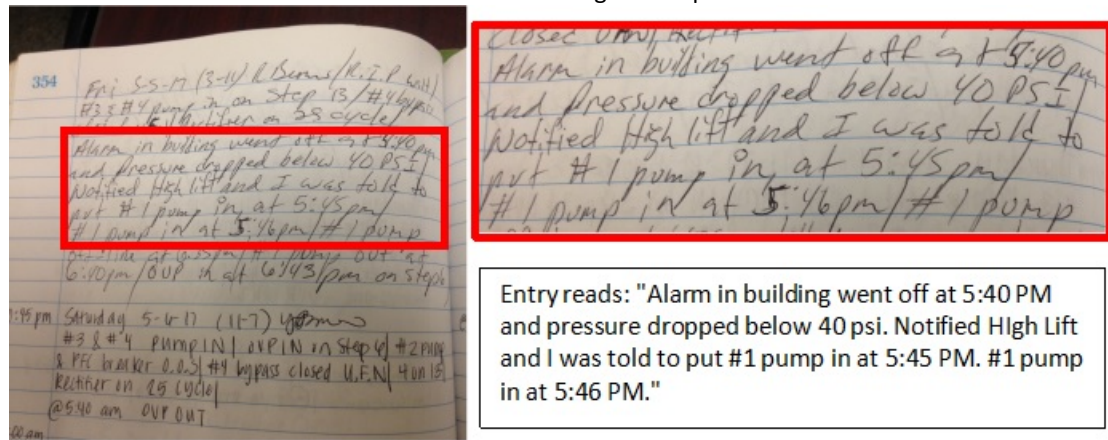 354
Fri 5-5-17 (3-11) R Burns / R.I.P
#3 & #4 pump in on Step 13 / #4 bypass
on 25 cycle /
Alarm in building went off at 5:40 pm
and Pressure dropped below 40 PSI /
Notified High lift and I was told to
put #1 pump in at 5:45 pm /
#1 pump in at 5:46 pm / #1 pump
at 6:35 pm / #1 pump out at
6:40 pm / OVP in at 6:43 pm on Step
:45 pm Saturday 5-6-17 (11-7)
#3 & #4 PUMP IN / OVP IN on Step 6 / #2 PUMP
& PFC breaker O.O.S / #4 bypass closed U.F.N / 4 on 13
Rectifier on 25 cycle /
@ 5:40 am OVP OUT
:00 am
closed
Alarm in building went off at 5:40 pm
and Pressure dropped below 40 PSI /
Notified High lift and I was told to
put #1 pump in at 5:45 pm /
#1 pump in at 5:46 pm / #1 pump
Entry reads: "Alarm in building went off at 5:40 PM
and pressure dropped below 40 psi. Notified HIgh Lift
and I was told to put #1 pump in at 5:45 PM. #1 pump
in at 5:46 PM."